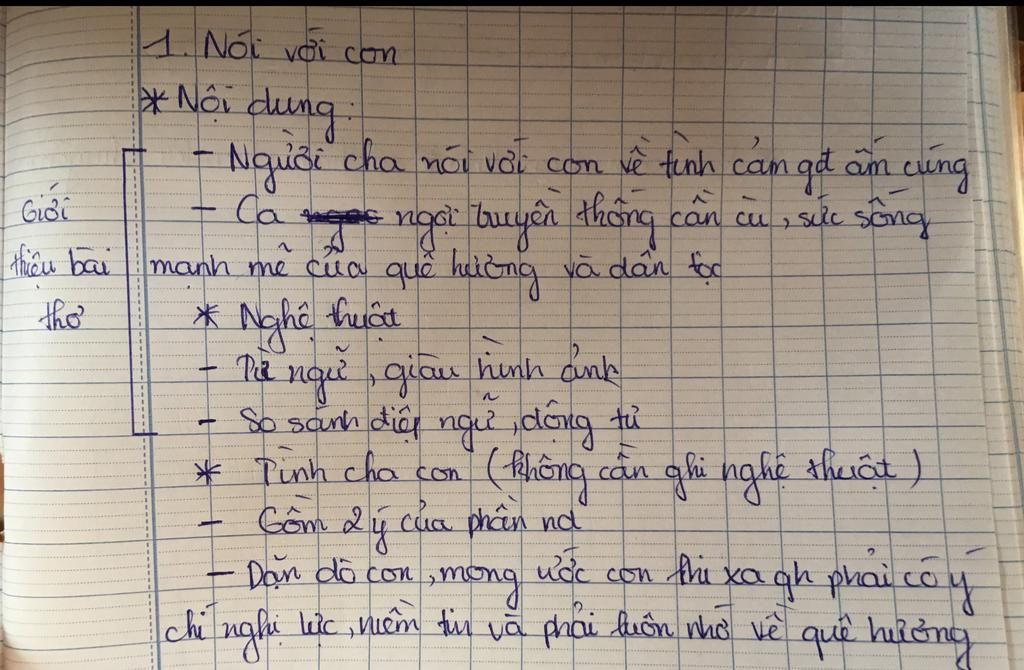 1. Nói với con
* Nội dung:
- Người cha nói với con về tình cảm gđ ấm cúng
- Ca ngợi truyền thống cần cù, sức sống
mạnh mẽ của quê hương và dân tộc
Giới
thiệu bài
thơ
* Nghệ thuật
- Từ ngữ, giàu hình ảnh
- So sánh điệp ngữ, động từ
* Tình cha con (không cần ghi nghệ thuật)
- Gồm 2 ý của phần nd
- Dặn dò con, mong ước con khi xa qh phải có ý
chí nghị lực, niềm tin và phải luôn nhớ về quê hương